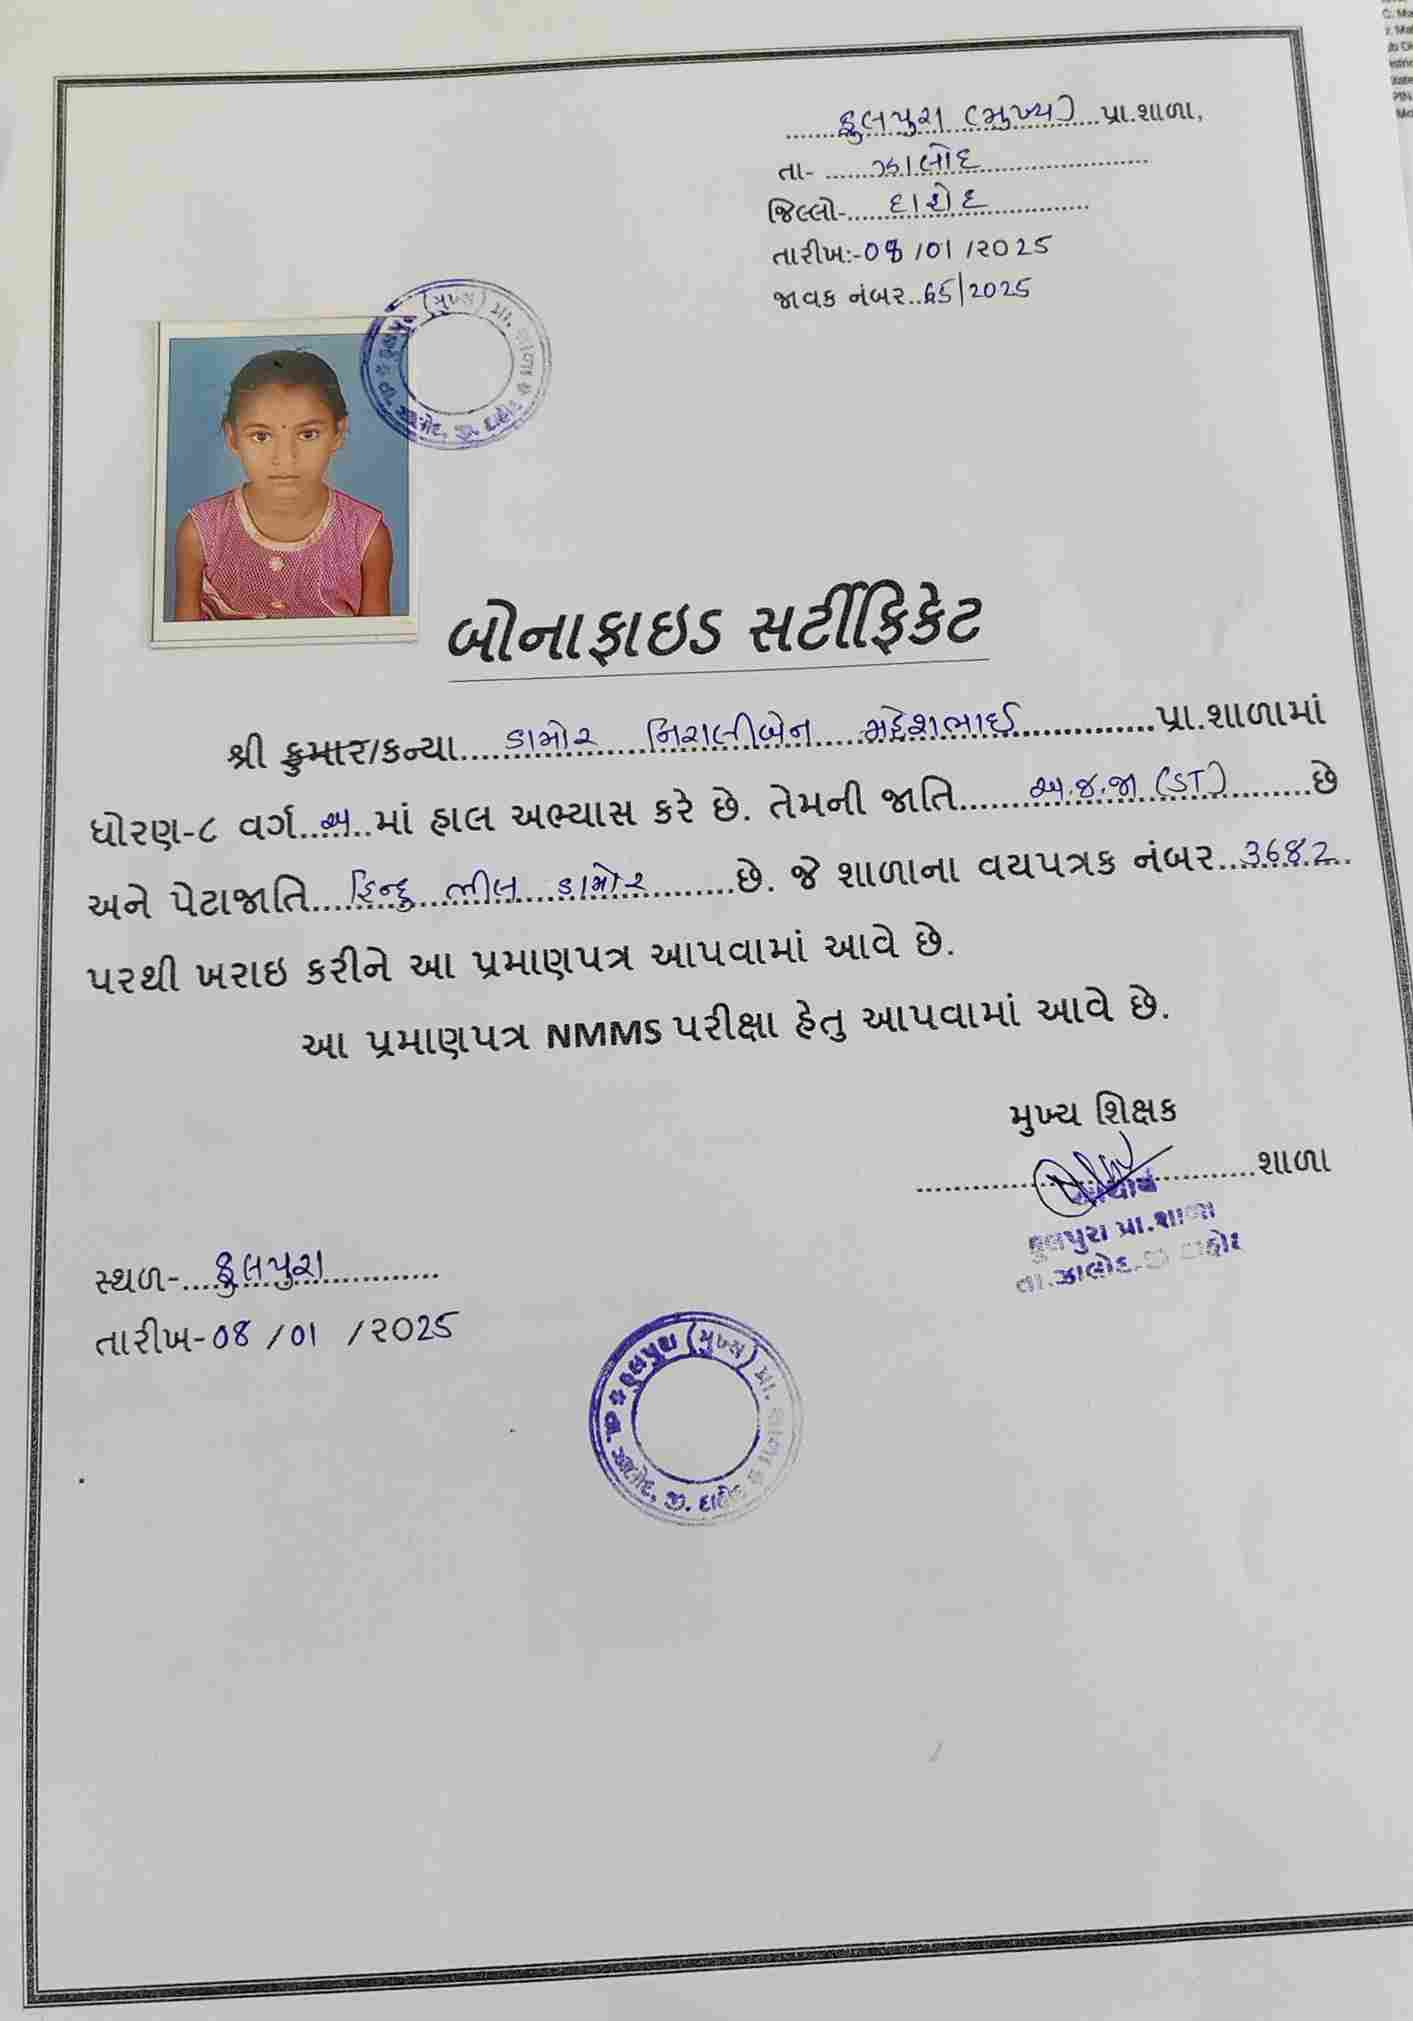 ફુલપુરા (મુખ્ય) પ્રા.શાળા,
તા- ઝાલોદ
જિલ્લો- દાહોદ
તારીખ:-08/01/૨025
જાવક નંબર..65/2025
ફુલપુરા (મુખ્ય) પ્રા. શાળા
તા. ઝાલોદ, જી. દાહોદ
બોનાફાઇડ સર્ટીફિકેટ
શ્રી કુમાર/કન્યા....ડામોર નિરાલીબેન મહેશભાઈ....પ્રા.શાળામાં
ધોરણ-૮ વર્ગ..અ..માં હાલ અભ્યાસ કરે છે. તેમની જાતિ....અ.જ.જા (ST)....છે
અને પેટાજાતિ....હિન્દુ ભીલ ડામોર....છે. જે શાળાના વયપત્રક નંબર..3682..
પરથી ખરાઇ કરીને આ પ્રમાણપત્ર આપવામાં આવે છે.
આ પ્રમાણપત્ર NMMS પરીક્ષા હેતુ આપવામાં આવે છે.
મુખ્ય શિક્ષક
....શાળા
આચાર્ય
ફુલપુરા પ્રા.શાળા
તા.ઝાલોદ.જી દાહોદ
સ્થળ-...ફુલપુરા...
તારીખ-08/01/૨025
ફુલપુરા (મુખ્ય) પ્રા. શાળા
તા. ઝાલોદ, જી. દાહોદ